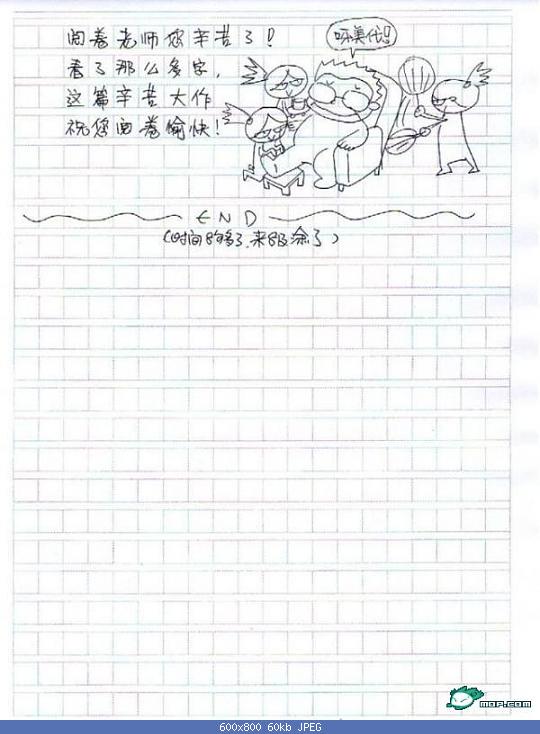 阅卷老师您辛苦了！
看了那么多字，
这篇辛苦大作
祝您阅卷愉快！
呀美代！！
END
（时间够了，来8及涂了）
mop.com
600x800 60kb JPEG